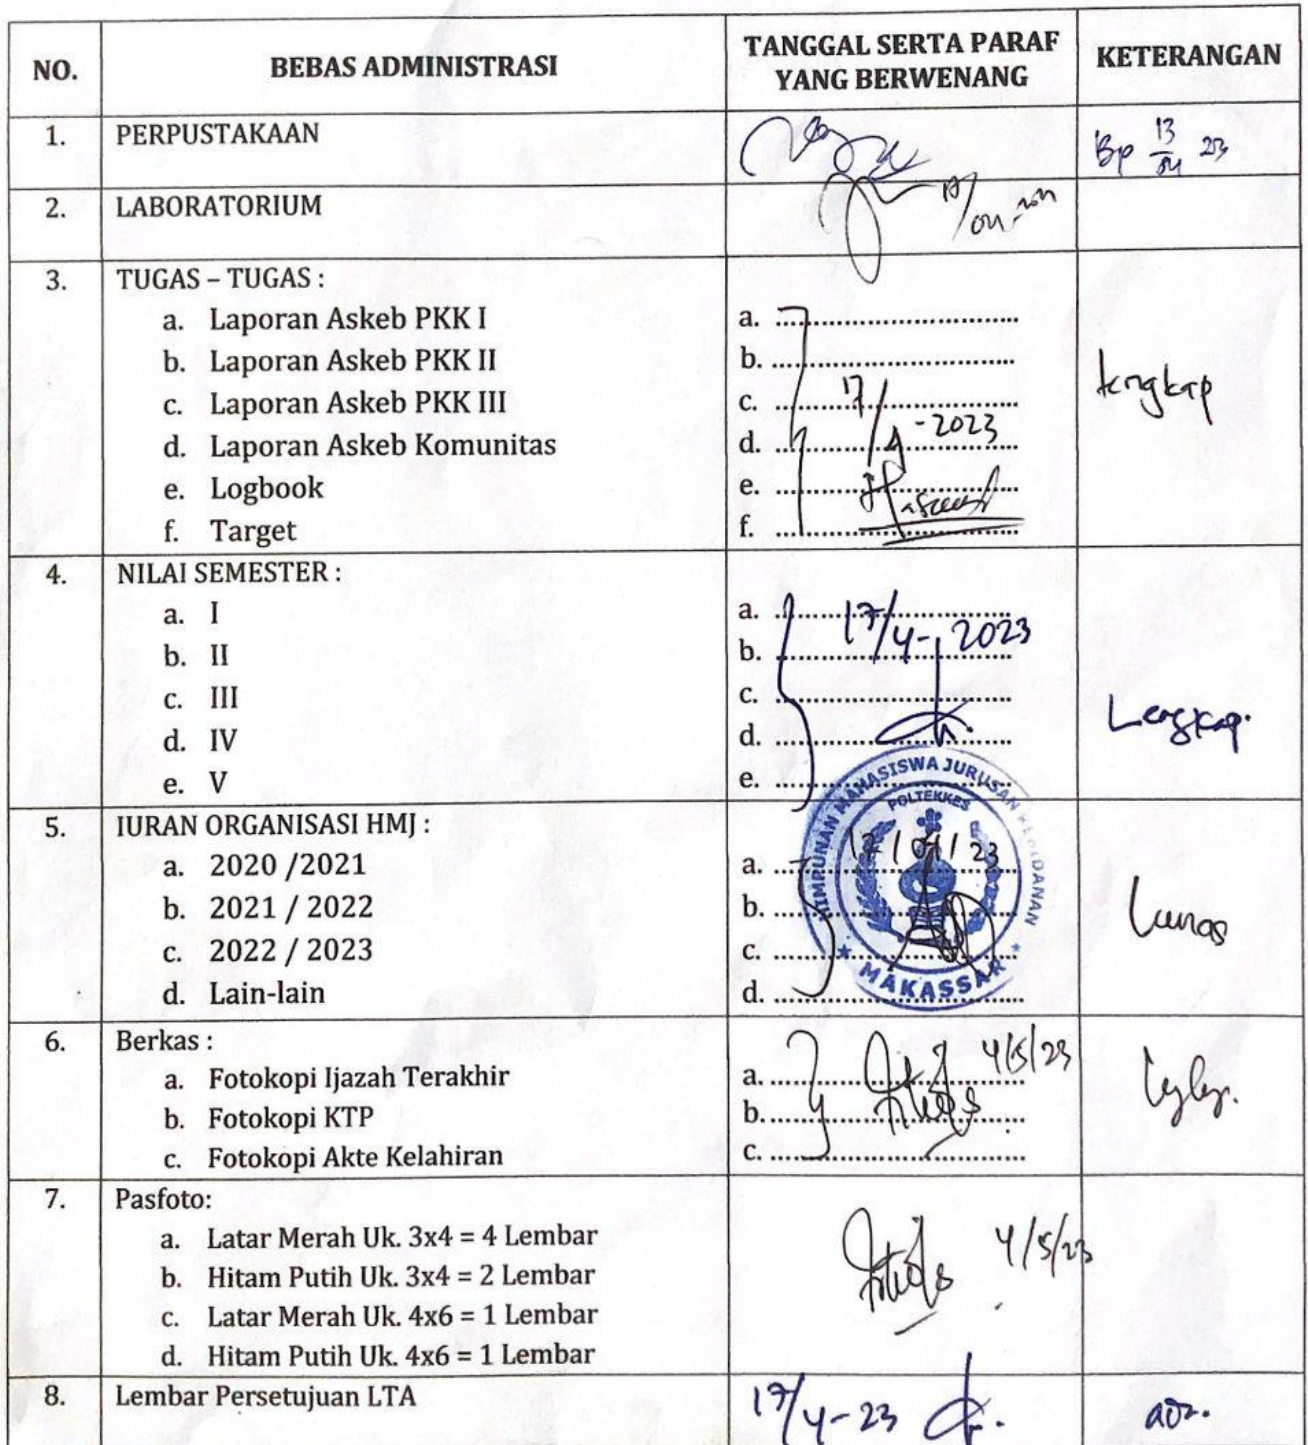 NO.
BEBAS ADMINISTRASI
TANGGAL SERTA PARAF
YANG BERWENANG
KETERANGAN
1.
PERPUSTAKAAN
Bp 13/04 23
2.
LABORATORIUM
3.
TUGAS – TUGAS :
a. Laporan Askeb PKK I
b. Laporan Askeb PKK II
c. Laporan Askeb PKK III
d. Laporan Askeb Komunitas
e. Logbook
f. Target
a. ....................
b. ....................
c. ....................
d. ....................
e. ....................
f. ....................
17/4-2023
lengkap
4.
NILAI SEMESTER :
a. I
b. II
c. III
d. IV
e. V
a. ....................
b. ....................
c. ....................
d. ....................
e. ....................
17/4-2023
Lengkap.
5.
IURAN ORGANISASI HMJ :
a. 2020 /2021
b. 2021 / 2022
c. 2022 / 2023
d. Lain-lain
a. ....................
b. ....................
c. ....................
d. ....................
17/04/23
HIMPUNAN MAHASISWA JURUSAN KEBIDANAN
POLTEKKES
MAKASSAR
Lunas
6.
Berkas :
a. Fotokopi Ijazah Terakhir
b. Fotokopi KTP
c. Fotokopi Akte Kelahiran
a. ....................
b. ....................
c. ....................
4/5/23
7.
Pasfoto:
a. Latar Merah Uk. 3x4 = 4 Lembar
b. Hitam Putih Uk. 3x4 = 2 Lembar
c. Latar Merah Uk. 4x6 = 1 Lembar
d. Hitam Putih Uk. 4x6 = 1 Lembar
4/5/23
8.
Lembar Persetujuan LTA
17/4-23